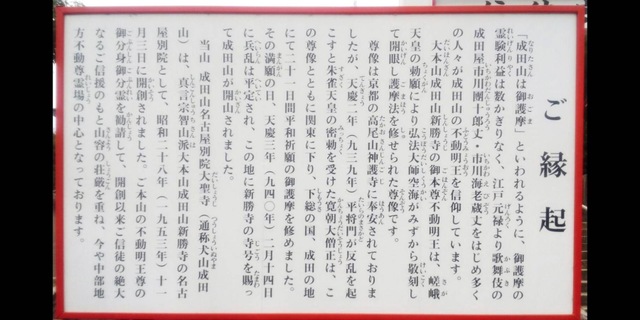 ご縁起
「成田山は御護摩」といわれるように、御護摩の
霊験利益は数かぎりなく、江戸元禄より歌舞伎の
成田屋市川團十郎丈・市川海老蔵丈をはじめ多く
の人々が成田山の不動明王を信仰しています。
大本山成田山新勝寺の御本尊不動明王は、嵯峨
天皇の勅願により弘法大師空海がみずから敬刻し
て開眼し護摩法を修せられた尊像です。
尊像は京都の高尾山神護寺に奉安されておりま
したが、天慶二年(九三九年)、平将門が反乱を起
こすと朱雀天皇の密勅を受けた寛朝大僧正は、こ
の尊像とともに関東に下り、下総の国、成田の地
にて二十一日間平和祈願の御護摩を修めました。
その満願の日、天慶三年(九四〇年)二月十四日
に兵乱は平定され、この地に新勝寺の寺号を賜っ
て成田山が開山されました。
当山 成田山名古屋別院大聖寺(通称犬山成田
山)は、真言宗智山派大本山成田山新勝寺の名古
屋別院として、昭和二十八年(一九五三年)十一
月三日に開創されました。ご本山の不動明王尊の
御分身御分霊を勧請して、開創以来ご信徒の絶大
なるご信援のもと山容の荘厳を重ね、今や中部地
方不動尊霊場の中心となっております。